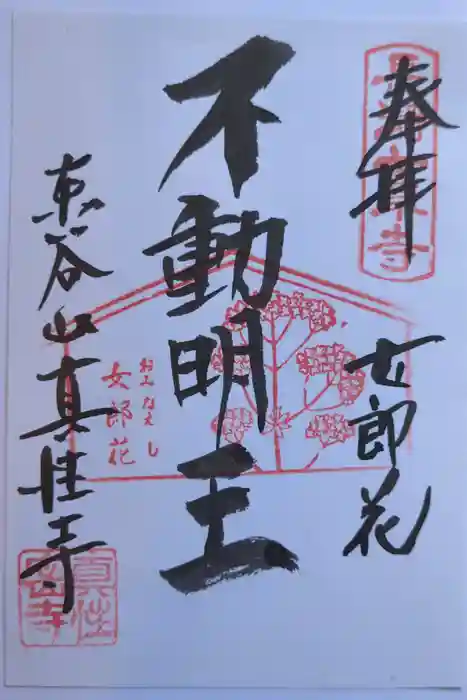 奉拝
女郎花
不動明王
おみなえし
女郎花
東谷山真性寺
真性